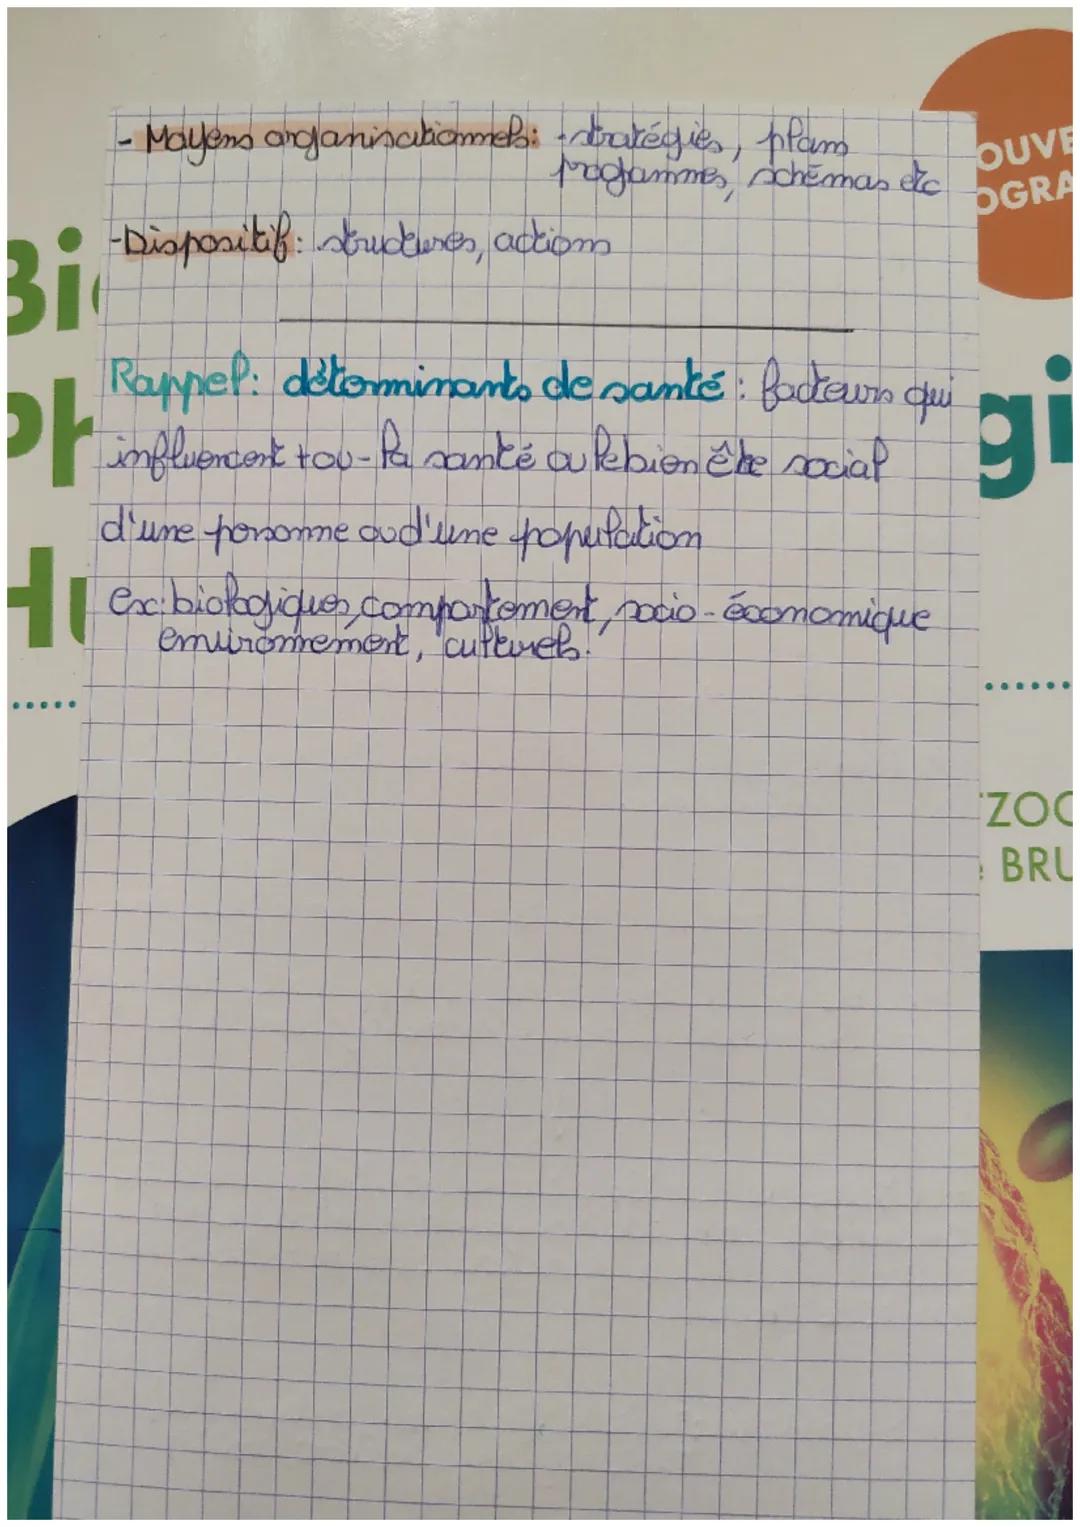 - Moyens organisationnels: -stratégies, plans
programmes, schémas etc
-Dispositif: structures, actions
Rappel: déterminants de santé: facteurs qui
influencent tou-la santé ou le bien être social
d'une personne ou d'une population
ex: biologiques, comportement, socio-économique
environnement, culturels.
OUVE
OGRA
Bi
gi
Ph
Hu
ZOO
BRU